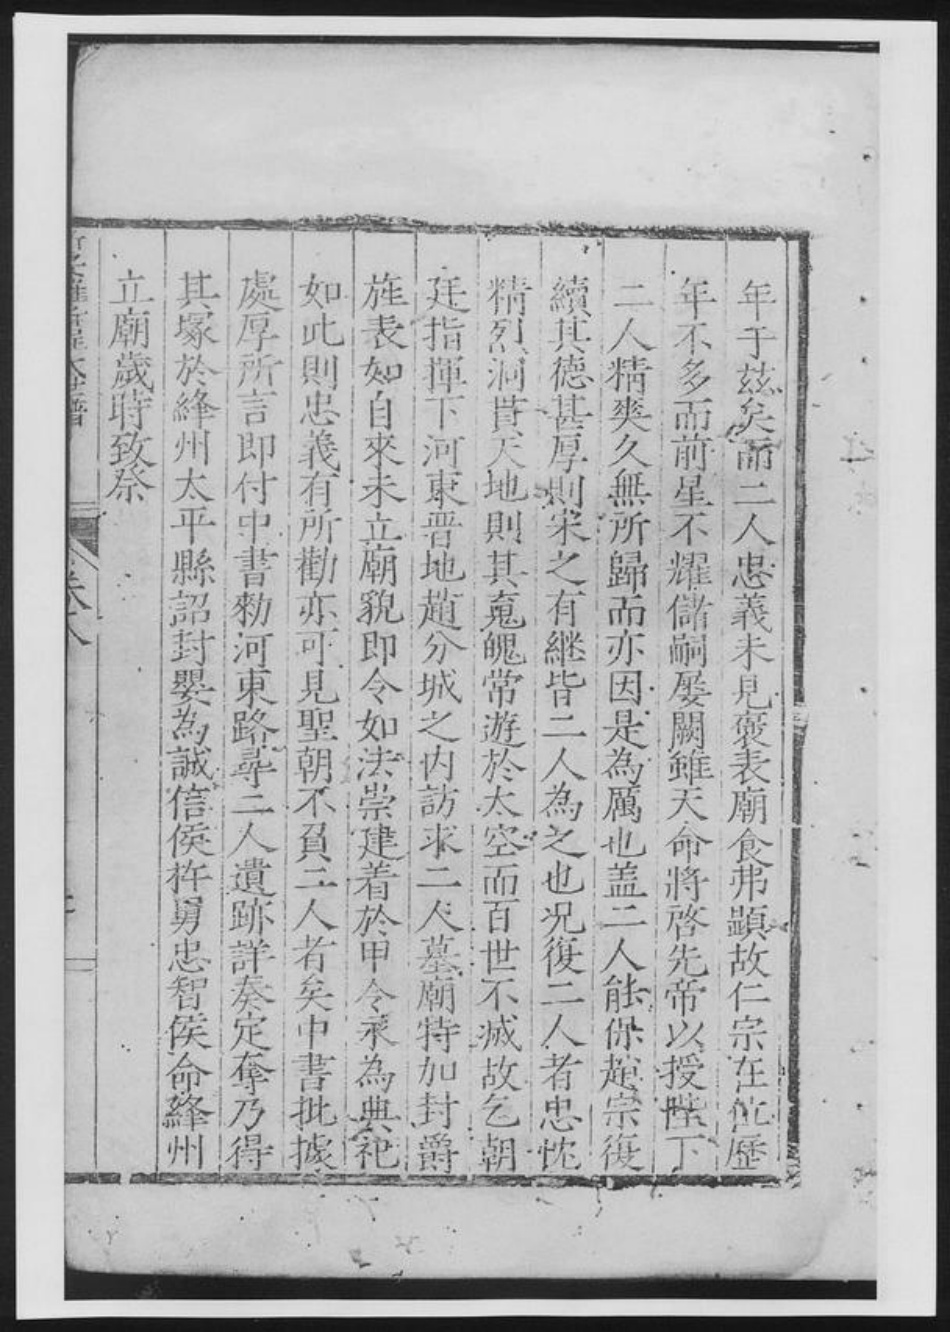 年于茲矣而二人忠義未見褒表廟食弗顯故仁宗在位歷
年不多而前星不耀儲嗣屡闕雖天命將啓先帝以授陛下
二人精爽久無所歸而亦因是為厲也盖二人能保趙宗復
續其德甚厚則宋之有継皆二人為之也况復二人者忠忱
精烈洞貫天地則其䰟魄常遊於太空而百世不滅故乞朝
廷指揮下河東晋地趙分城之内訪求二人墓廟特加封爵
旌表如自來未立廟貌即令如法崇建着於甲令永為典祀
如此則忠義有所勸亦可見聖朝不負二人者矣中書批據
處厚所言即付中書勑河東路尋二人遺跡詳奏定奪乃得
其塚於絳州太平縣詔封嬰為誠信侯杵臼忠智侯命絳州
立廟歲時致祭
卷八